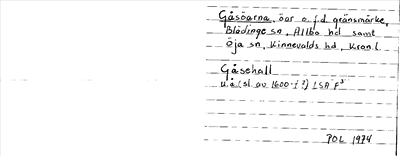 Gåsöarna, öar o. f.d. gränsmärke,
Blädinge sn, Allbo hd samt
Öja sn, Kinnevalds hd, Kron. l.
Gåsehall
u.å. (sl. av 1600-t ?) LSA F³
POL 1974